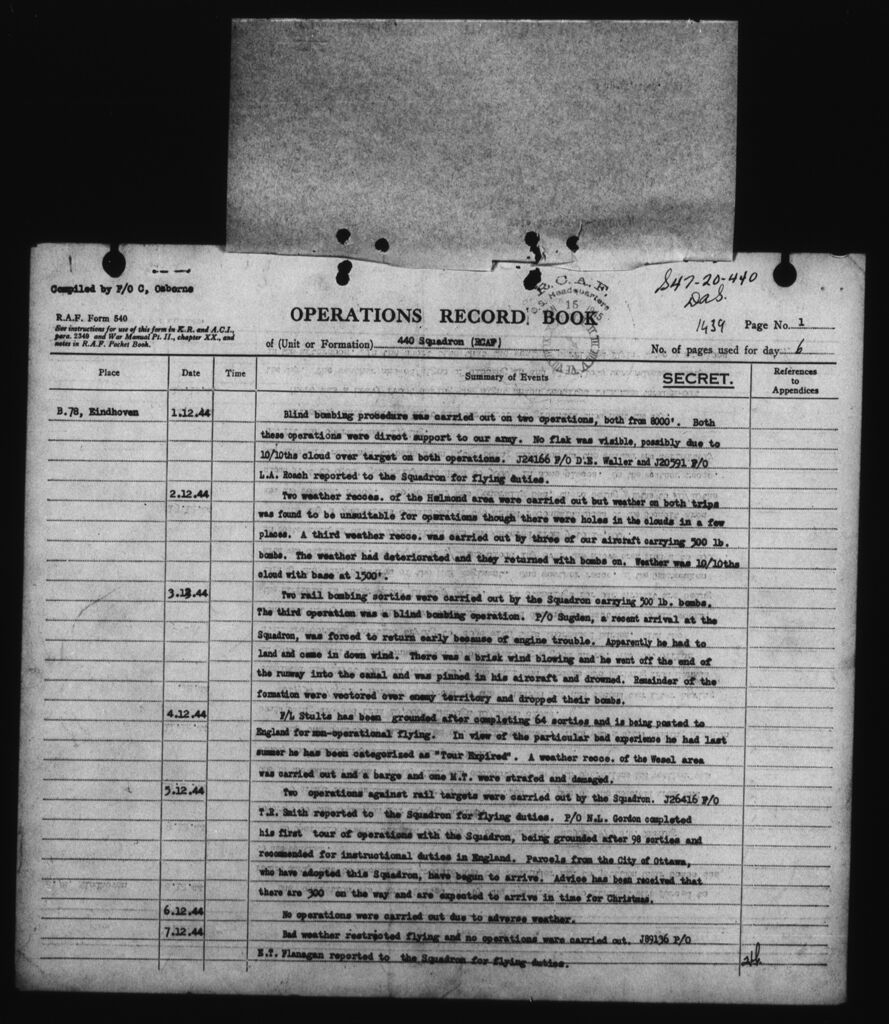 S47-20-440
DAS.
R.C.A.F.
O.S. Headquarters
15
Compiled by F/O C, Osborne
R.A.F. Form 540
See instructions for use of this form in K.R. and A.C.I.,
para. 2349 and War Manual Pt. II., chapter XX., and
notes in R.A.F. Pocket Book.
OPERATIONS RECORD BOOK
of (Unit or Formation) 440 Squadron (RCAF)
1439 Page No. 1
No. of pages used for day 6
Place Date Time Summary of Events SECRET. References
to
Appendices
B.78, Eindhoven 1.12.44 Blind bombing procedure was carried out on two operations, both from 8000'. Both
these operations were direct support to our army. No flak was visible, possibly due to
10/10ths cloud over target on both operations. J24166 F/O D.E. Waller and J20591 F/O
L.A. Roach reported to the Squadron for flying duties.
2.12.44 Two weather recces. of the Helmond area were carried out but weather on both trips
was found to be unsuitable for operations though there were holes in the clouds in a few
places. A third weather recce. was carried out by three of our aircraft carrying 500 lb.
bombs. The weather had deteriorated and they returned with bombs on. Weather was 10/10ths
cloud with base at 1500'.
3.12.44 Two rail bombing sorties were carried out by the Squadron carrying 500 lb. bombs.
The third operation was a blind bombing operation. P/O Sugden, a recent arrival at the
Squadron, was forced to return early because of engine trouble. Apparently he had to
land and came in down wind. There was a brisk wind blowing and he went off the end of
the runway into the canal and was pinned in his aircraft and drowned. Remainder of the
formation were vectored over enemy territory and dropped their bombs.
4.12.44 F/L Stults has been grounded after completing 64 sorties and is being posted to
England for non-operational flying. In view of the particular bad experience he had last
summer he has been categorized as "Tour Expired". A weather recce. of the Wesel area
was carried out and a barge and one M.T. were strafed and damaged.
5.12.44 Two operations against rail targets were carried out by the Squadron. J26416 F/O
T.E. Smith reported to the Squadron for flying duties. F/O N.L. Gordon completed
his first tour of operations with the Squadron, being grounded after 98 sorties and
recommended for instructional duties in England. Parcels from the City of Ottawa,
who have adopted this Squadron, have begun to arrive. Advice has been received that
there are 300 on the way and are expected to arrive in time for Christmas.
6.12.44 No operations were carried out due to adverse weather.
7.12.44 Bad weather restricted flying and no operations were carried out. J89136 P/O
E.T. Flanagan reported to the Squadron for flying duties.